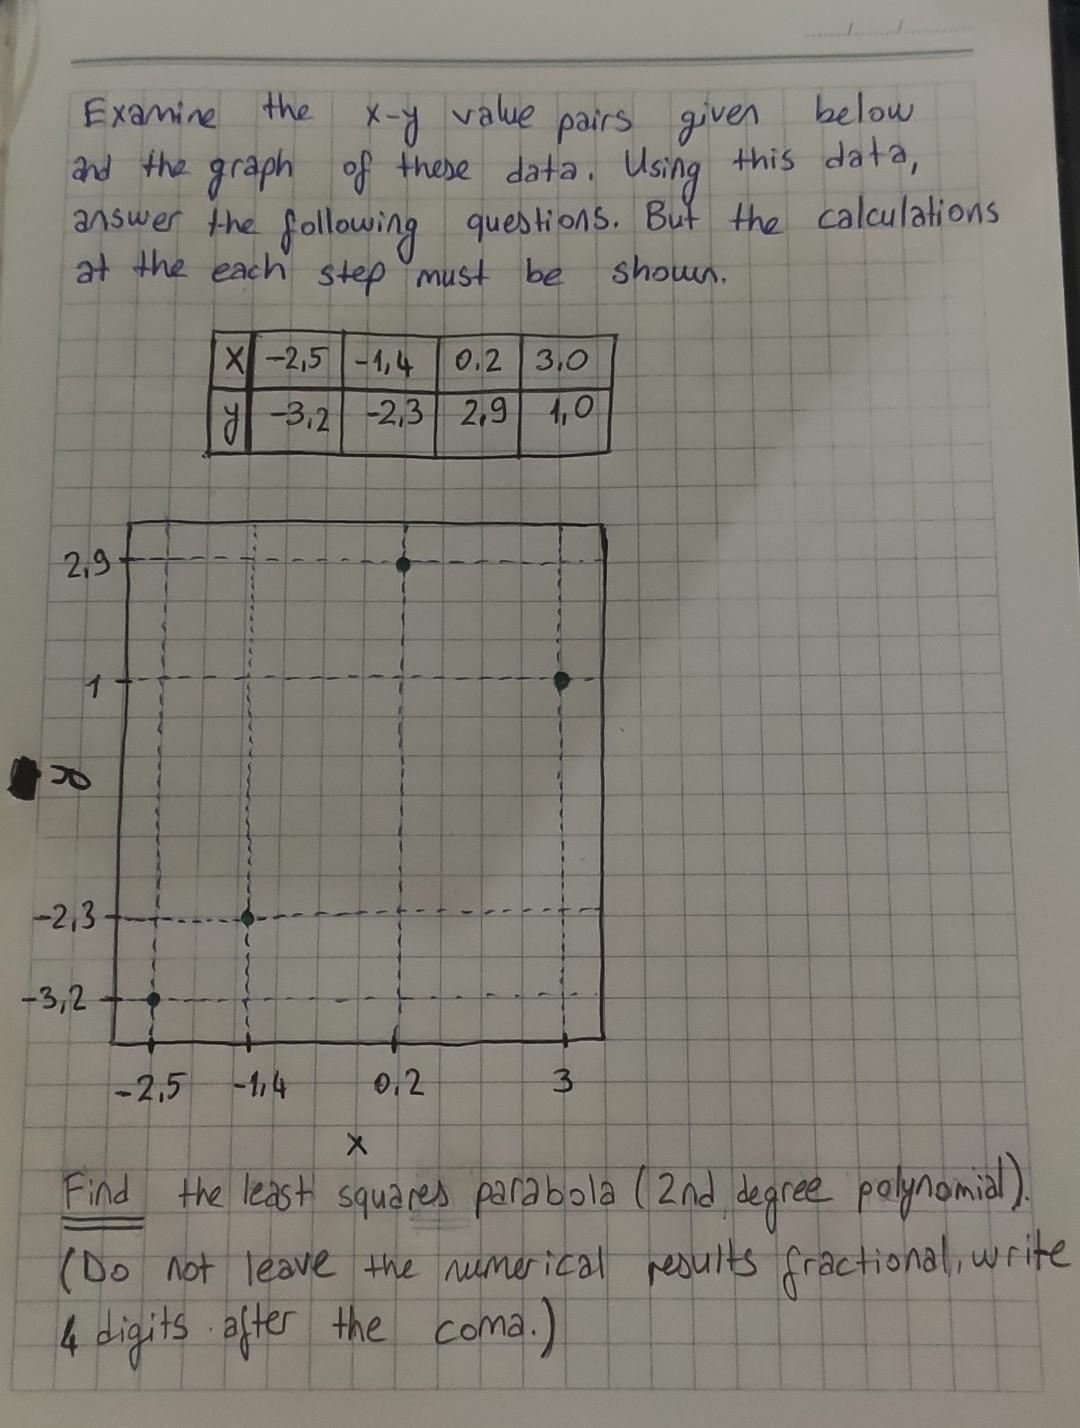 Examine the x-y value pairs given below
and the graph of these data. Using this data,
answer the following questions. But the calculations
at the each step must be shown.
x -2,5 -1,4 0.2 3,0
y -3,2 -2,3 2,9 1,0
2,9
1
y
-2,3
-3,2
-2,5 -1,4 0,2 3
x
Find the least squares parabola (2nd degree polynomial).
(Do not leave the numerical results fractional, write
4 digits after the coma.)